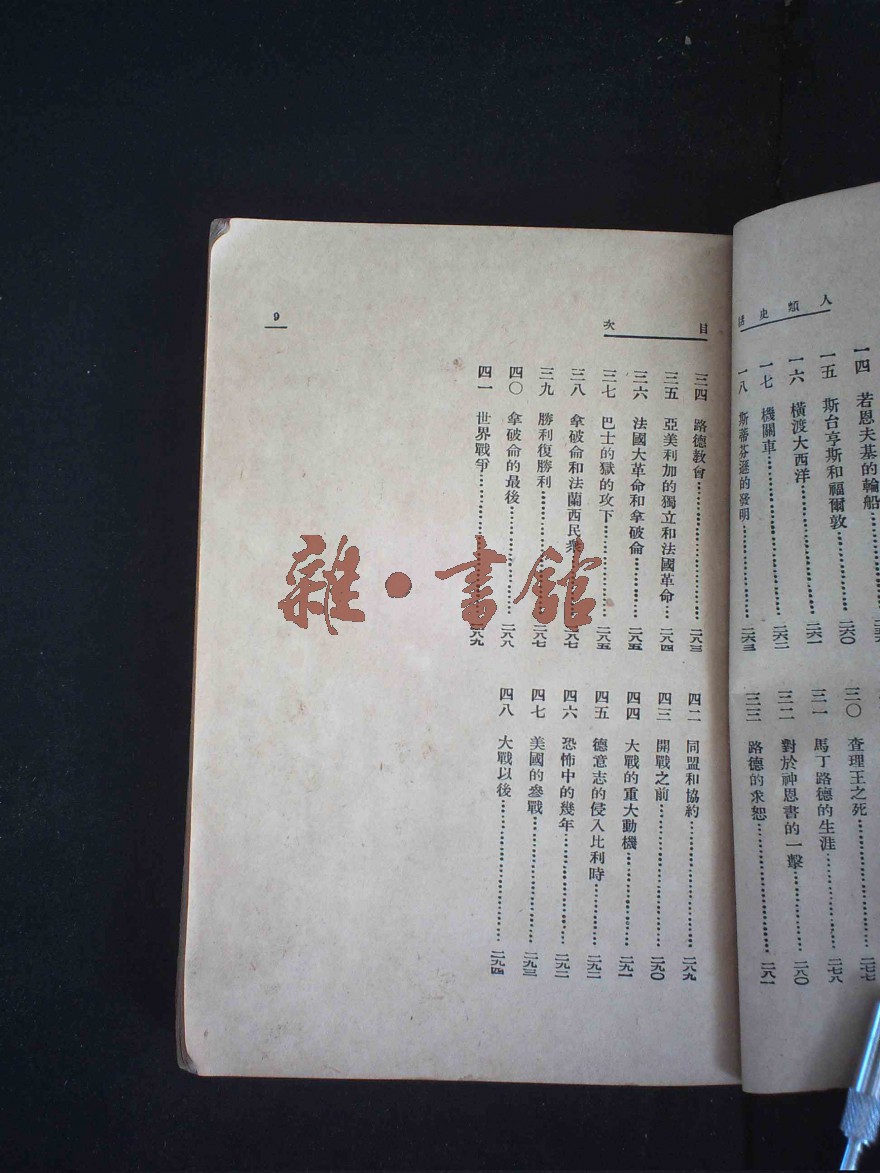 人類史話
一四 若恩夫基的輪船
一五 斯台亨斯和福爾敦……二六〇
一六 橫渡大西洋……二六一
一七 機關車……二六二
一八 斯蒂芬遜的發明……二六三
三〇 查理王之死……二七七
三一 馬丁路德的生涯……二七八
三二 對於神恩書的一擊……二八〇
三三 路德的求恕……二八一
目次
三四 路德教會……二八三
三五 亞美利加的獨立和法國革命…二八四
三六 法國大革命和拿破侖……二八五
三七 巴士的獄的攻下……二八五
三八 拿破命和法蘭西民衆……二八七
三九 勝利復勝利……二八七
四〇 拿破命的最後……二八八
四一 世界戰爭……二八九
四二 同盟和協約……二八九
四三 開戰之前……二九〇
四四 大戰的重大動機……二九一
四五 德意志的侵入比利時……二九二
四六 恐怖中的幾年……二九二
四七 美國的參戰……二九三
四八 大戰以後……二九四
9
雜·書館